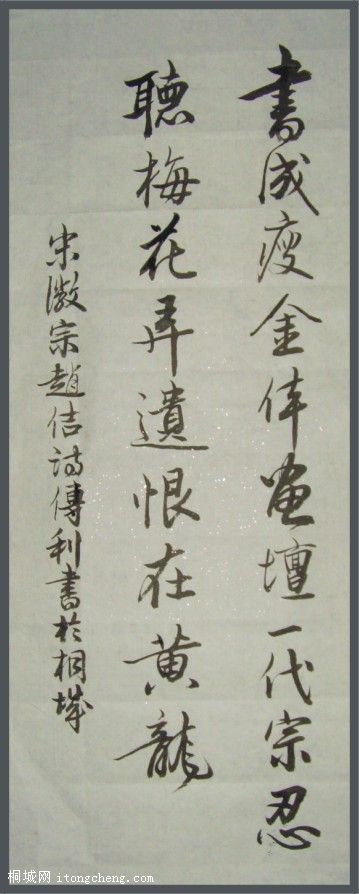 書成瘦金体畫壇一代宗忍
聽梅花弄遺恨在黃龍
宋徽宗趙佶詩傳利書於桐城
桐城网 itongcheng.com